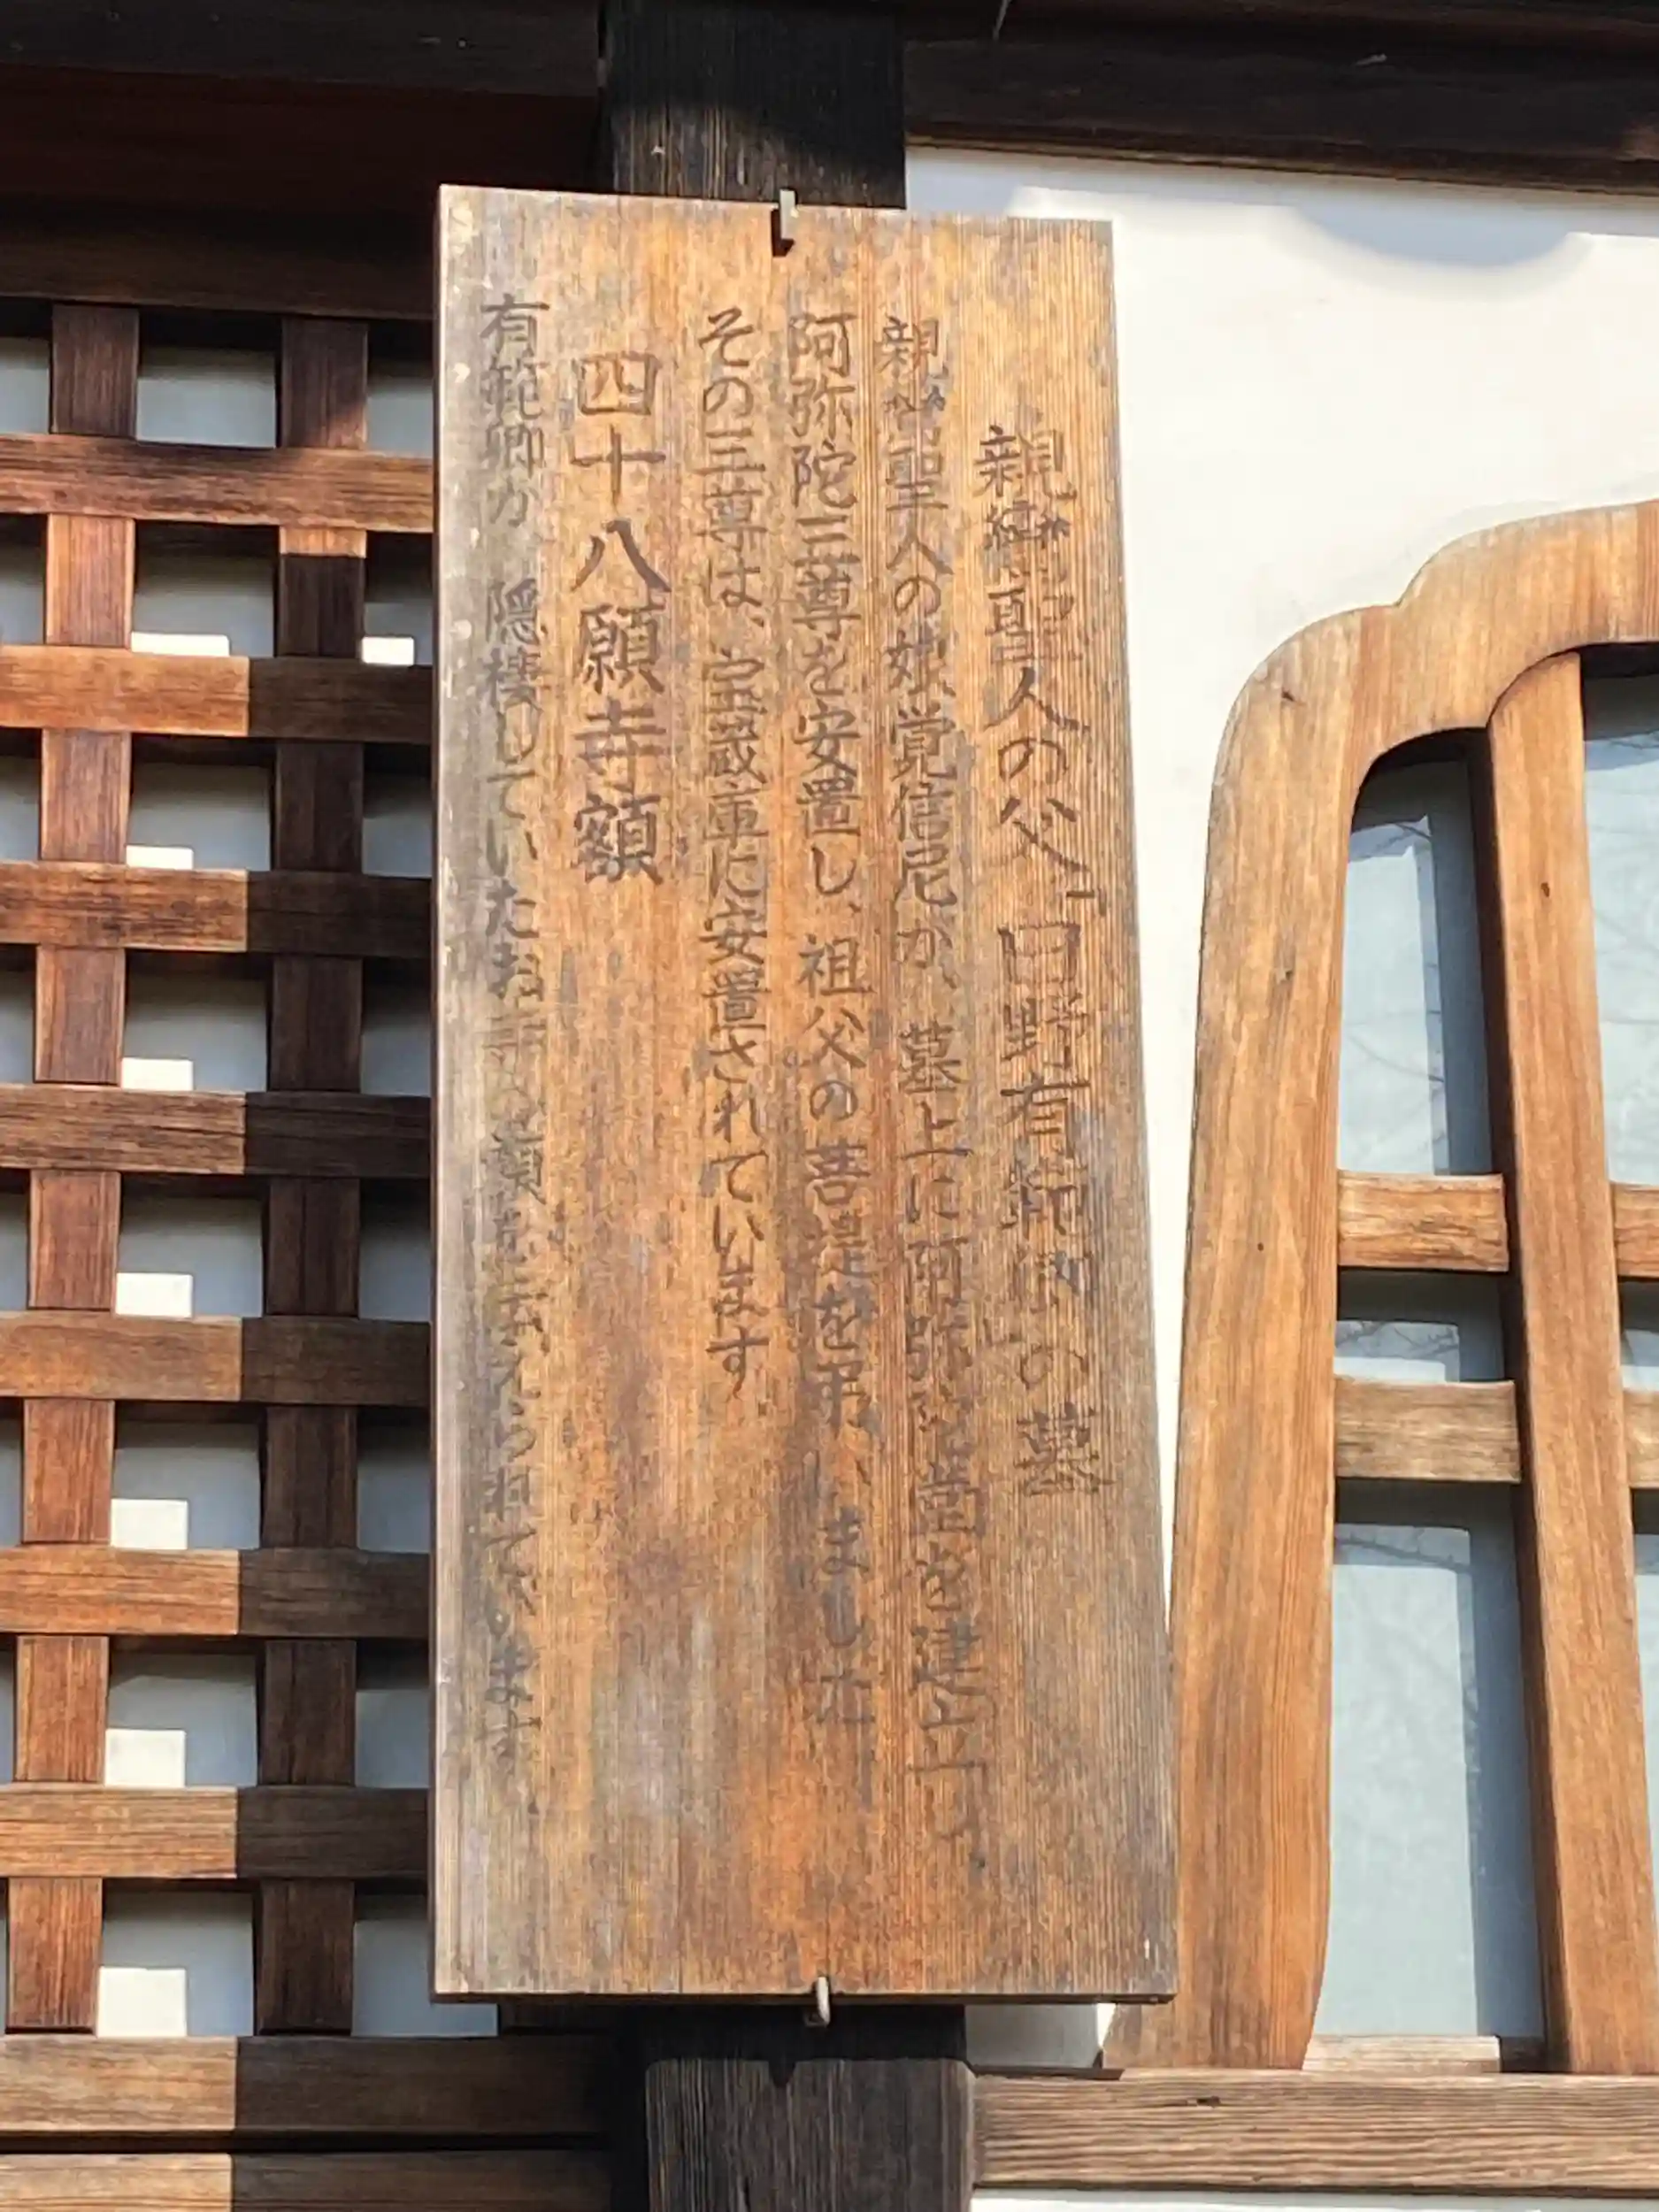 親鸞聖人の父「日野有範卿」の墓
親鸞聖人の娘覚信尼が、墓上に阿弥陀堂を建立し、
阿弥陀三尊を安置し、祖父の菩提を弔いました
その三尊は、宝蔵庫に安置されています
四十八願寺額
有範卿が 隠棲していたお寺の額と伝えられています